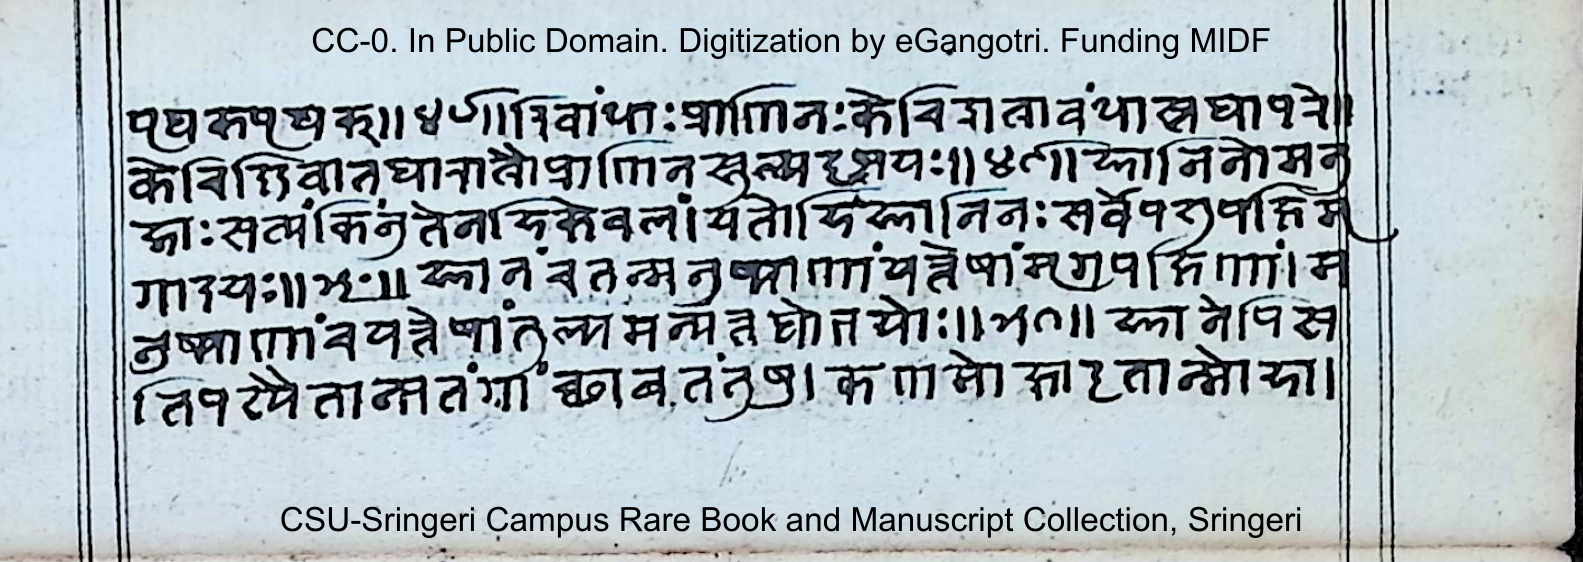 CC-0. In Public Domain. Digitization by eGangotri. Funding MIDF
पृथक्पृथक्॥४७॥दिवांधाः प्राणिनः केचिद्रात्रावंधास्तथापरे॥
केचिद्दिवातथारात्रौप्राणिनस्तुल्यदृष्टयः॥४८॥ज्ञानिनोमनु
जाः सत्यंकिंनुतेनहिकेवलं।यतोहिज्ञानिनः सर्वेपशुपक्षिमृ
गादयः॥४९॥ज्ञानंचतन्मनुष्याणांयत्तेषांमृगपक्षिणां।म
नुष्याणांचयत्तेषांतुल्यमन्यत्तथोभयोः॥५०॥ज्ञानेपिस
तिपश्यैतान्पतंगांच्छावचंचुषु।कणमोक्षादृतान्मोहा।
CSU-Sringeri Campus Rare Book and Manuscript Collection, Sringeri